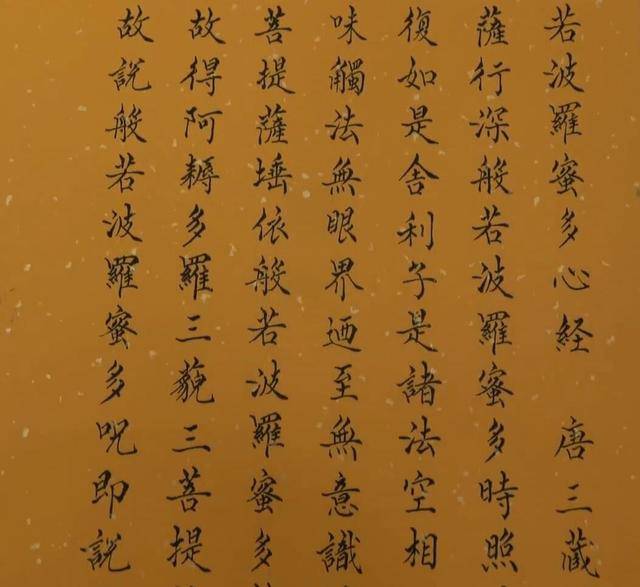 若波羅蜜多心経 唐三蔵
薩行深般若波羅蜜多時照
復如是舎利子是諸法空相
味觸法無眼界迺至無意識
菩提薩埵依般若波羅蜜多
故得阿耨多羅三藐三菩提
故説般若波羅蜜多呪即説